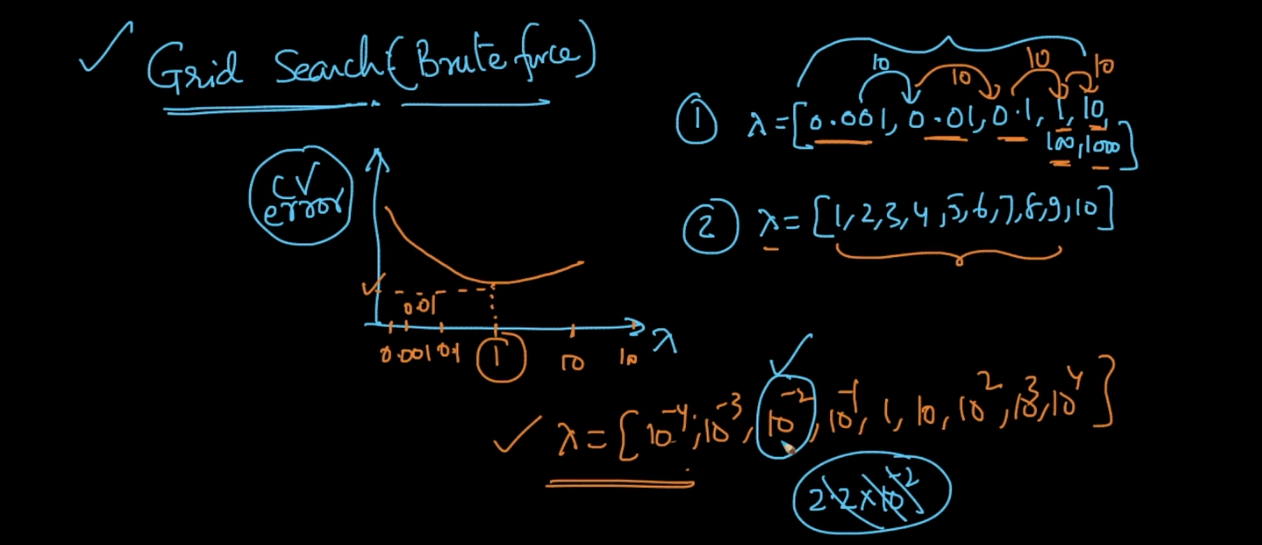 ✓ Grid Search (Brute force)
CV error
0.01
0.001 0.1 1 10 100 λ
① λ = [0.001, 0.01, 0.1, 1, 10,
100, 1000]
10 10 10 10
② λ = [1, 2, 3, 4, 5, 6, 7, 8, 9, 10]
✓ λ = [10⁻⁴, 10⁻³, 10⁻², 10⁻¹, 1, 10, 10², 10³, 10⁴]
2.2x10⁻²